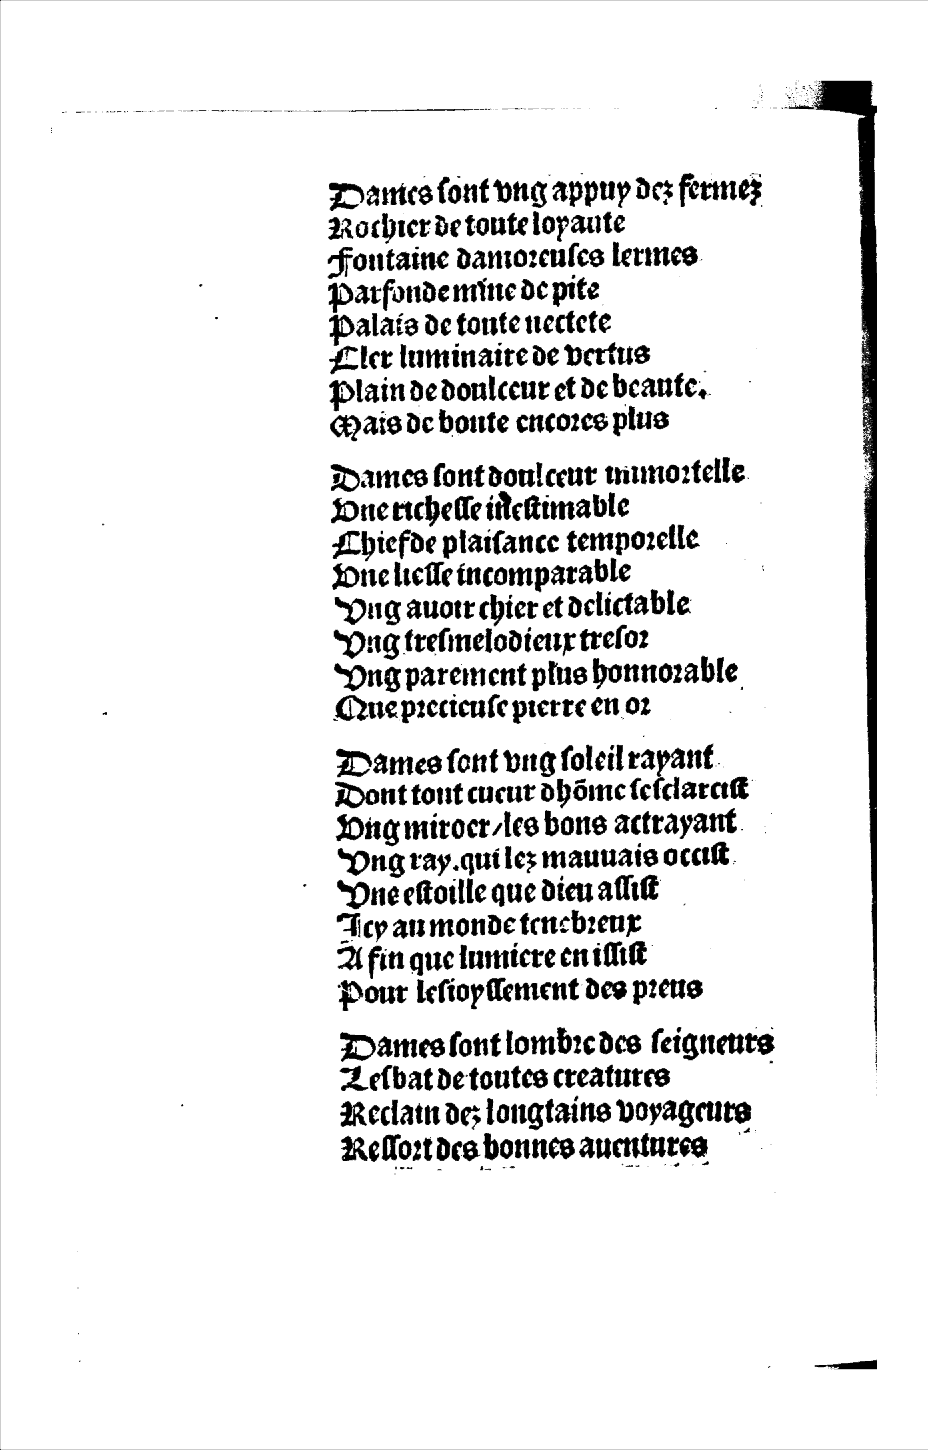 Dames sont vng appuy dez fermez
Rochier de toute loyaute
Fontaine damoreuses lermes
Parfonde mine de pite
Palais de toute nectete
Cler luminaire de vertus
Plain de doulceur et de beaute.
Mais de bonte encores plus
Dames sont doulceur immortelle
Vne richesse inestimable
Chief de plaisance temporelle
Vne liesse incomparable
Vng auoir chier et delictable
Vng tresmelodieux tresor
Vng parement plus honnorable
Que precieuse pierre en or
Dames sont vng soleil rayant
Dont tout cueur dhõme sesclarcist
Vng miroer/les bons actrayant
Vng ray.qui lez mauuais occist
Vne estoille que dieu assist
Icy au monde tenebreux
A fin que lumiere en issist
Pour lesioyssement des preus
Dames sont lombre des seigneurs
Lesbat de toutes creatures
Reclain dez longtains voyageurs
Ressort des bonnes auentures